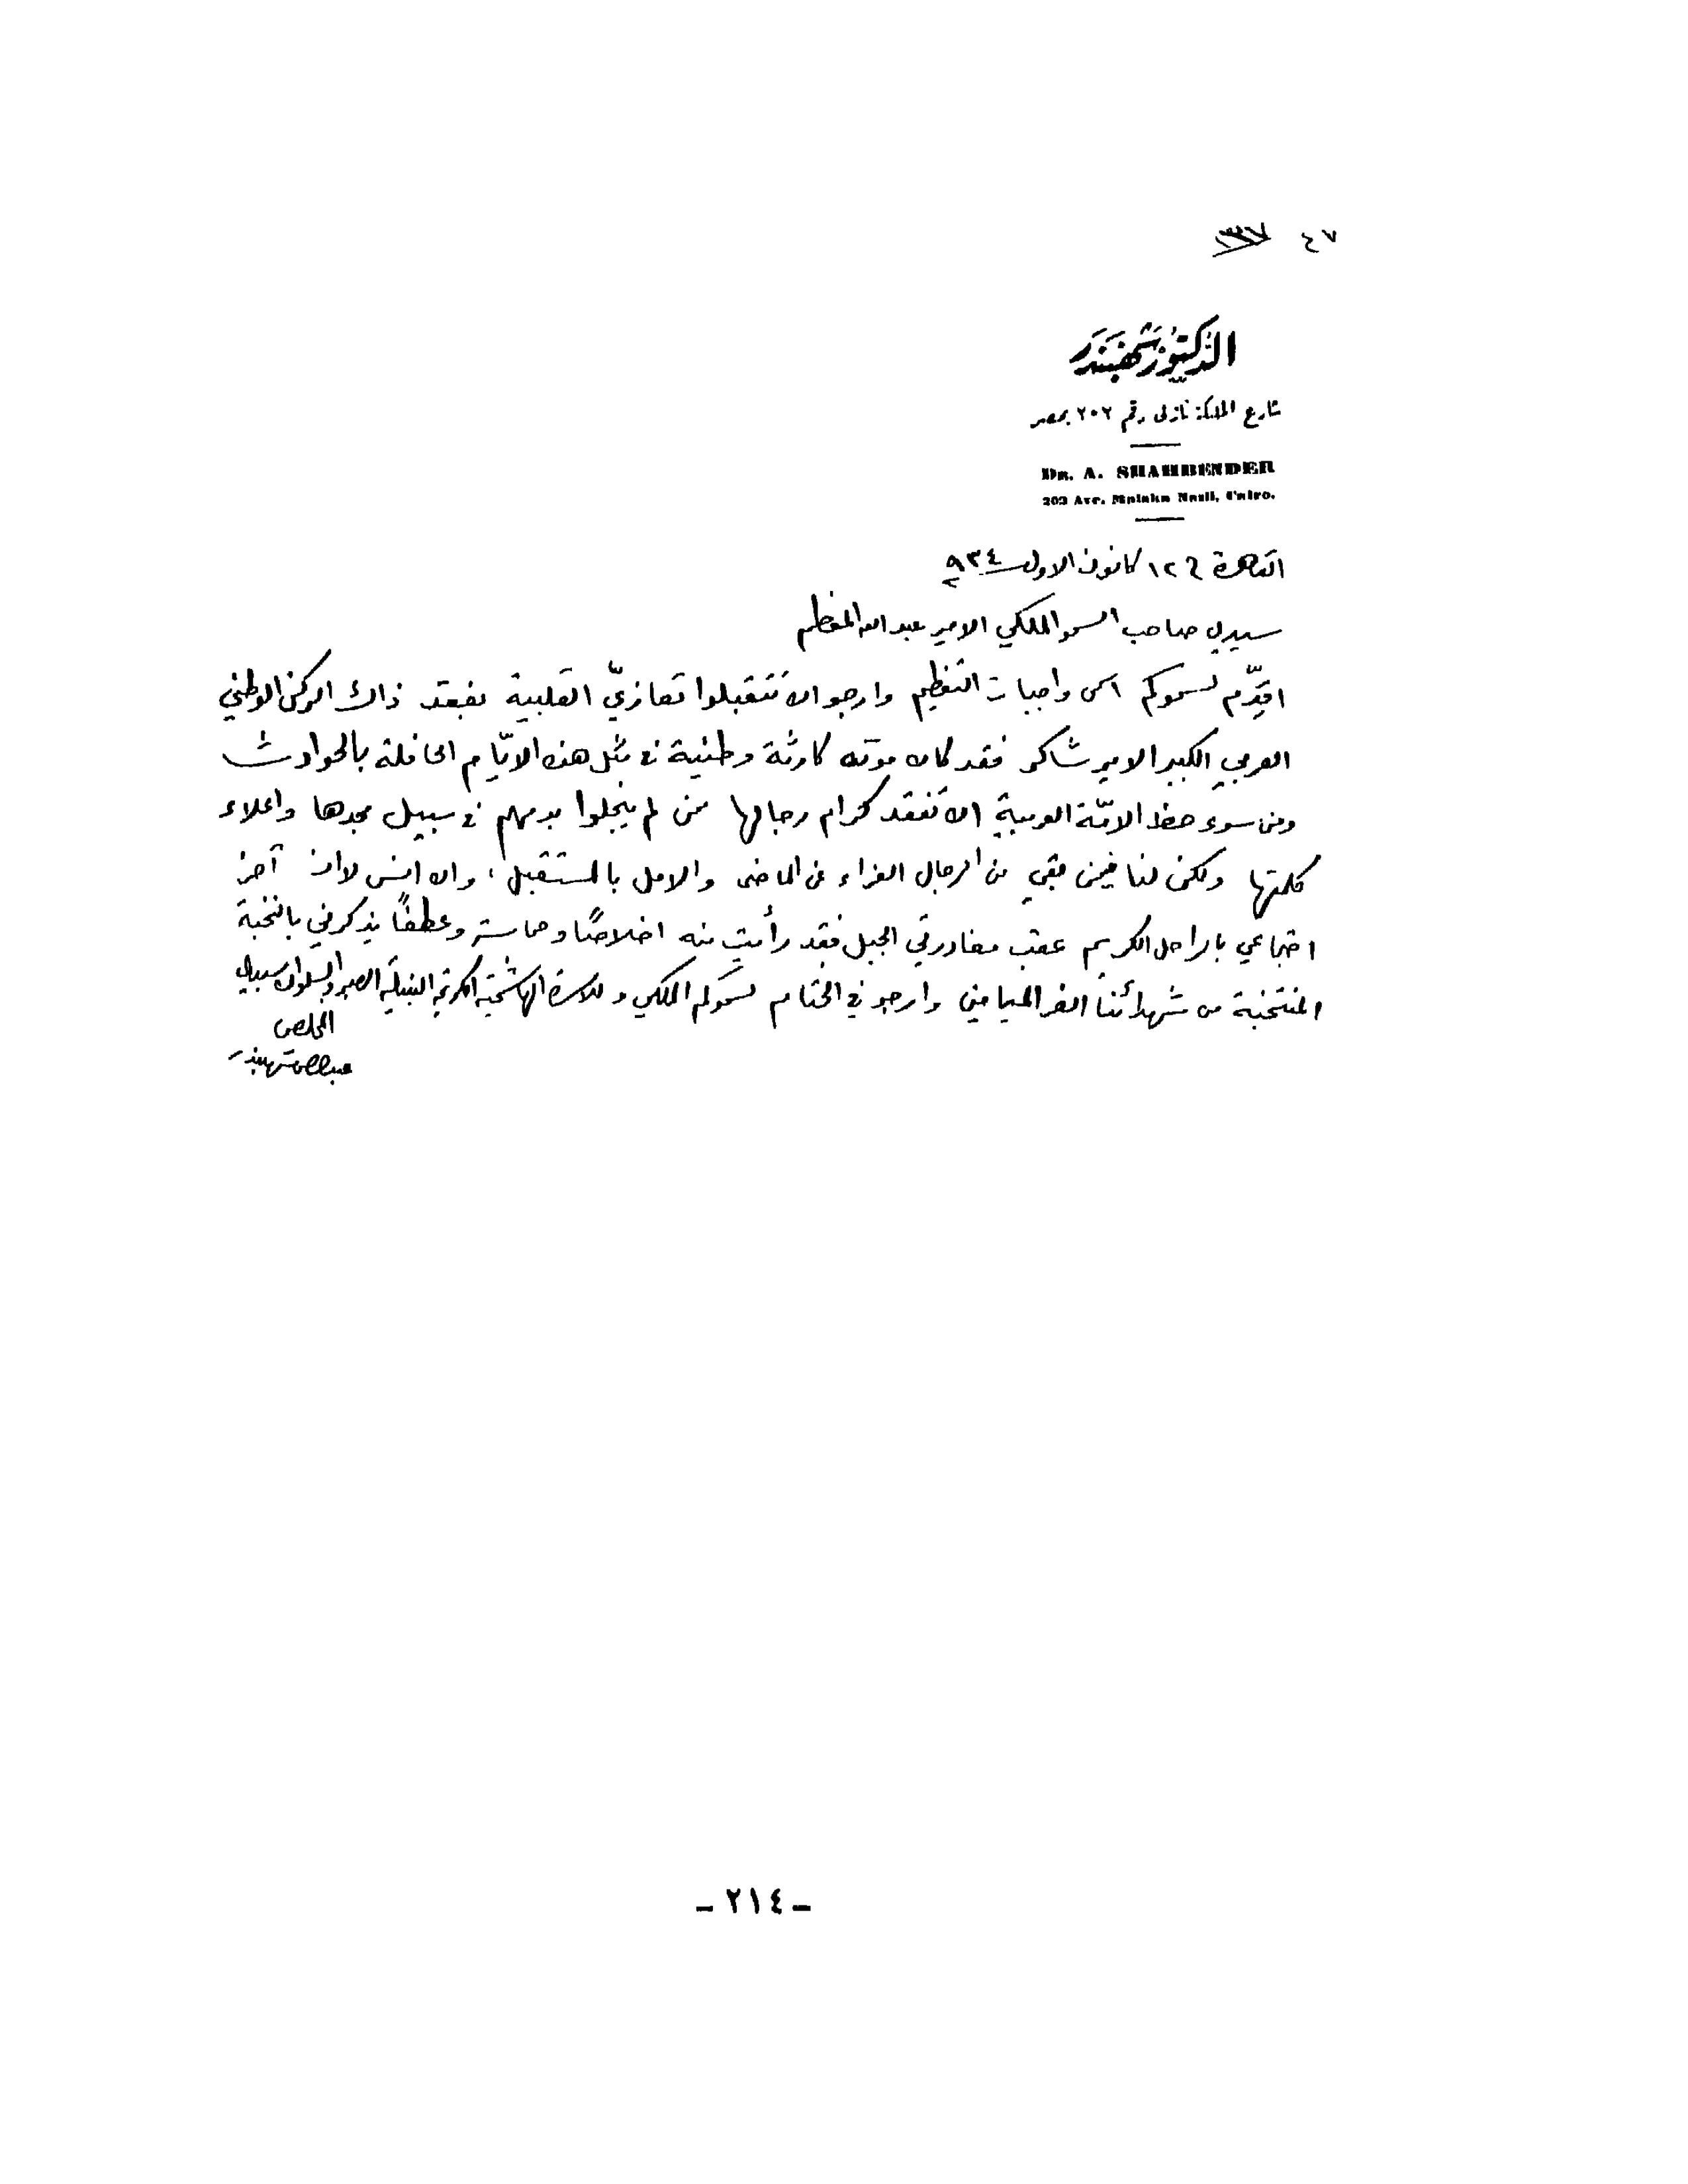 ٤٧
الدكتور شهبندر
شارع الملكة نازلى رقم ٢٠٢ بمصر
DR. A. SHAHBENDER
202 Ave. Malaka Nazli, Cairo.
القاهرة في ١٢ كانون الاول ٩٣٤
سيدي صاحب السمو الملكي الامير عبد الله المعظم
اقدّم لسموكم اسمى واجبات التعظيم وارجو ان تتقبلوا تعازيّ القلبية بفقد ذاك الركن الوطني
العربي الكبير الامير شاكر فقد كان موته كارثة وطنية في مثل هذه الايّام الحافلة بالحوادث
ومن سوء حظ الامّة العربية ان تفقد كرام رجالها ممن لم يبخلوا بدمهم في سبيل مجدها واعلاء
كلمتها ولكن لنا فيمن بقي من الرجال العزاء عن الماضى والامل بالمستقبل، وان انس لا انس آخر
اجتماعي بالراحل الكريم عقب مغادرتي الجبل فقد رأيت منه اخلاصًا وحماسة وعطفًا يذكرني بالنخبة
المنتخبة من شهدائنا الغر الميامين وارجو في الختام لسموكم الملكي وللاسرة الهاشمية الكريمة النبيلة الصبر والسلوان سيدي
المخلص
عبد الرحمن شهبندر
- ٢١٤ -